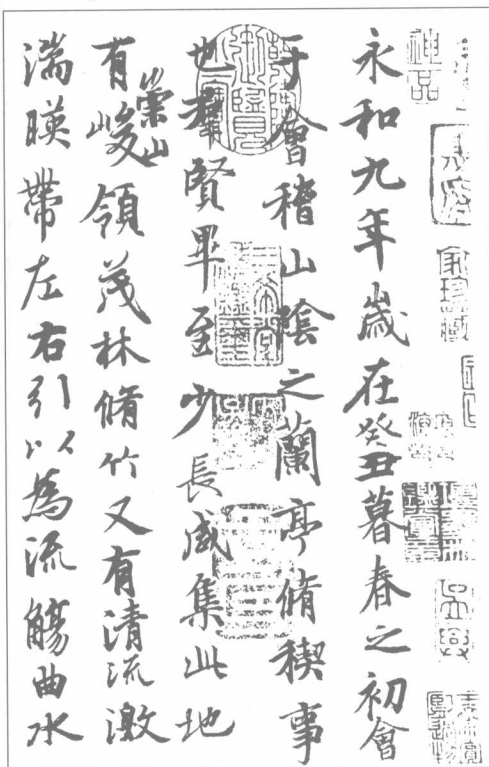 神品
永和九年歲在癸丑暮春之初會
于會稽山陰之蘭亭脩稧事
也羣賢畢至少長咸集此地
有崇山峻領茂林脩竹又有清流激
湍暎帶左右引以為流觴曲水